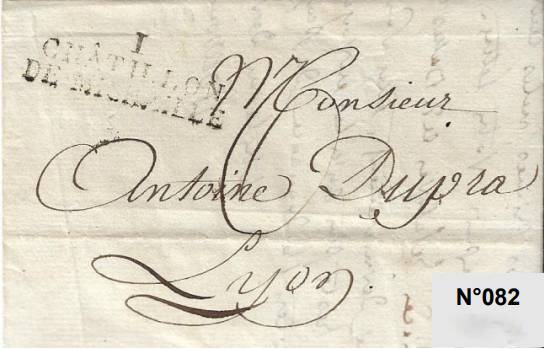 1
CHÂTILLON
DE MICHAILLE
Monsieur
Antoine Dupra
Lyon.
N°082